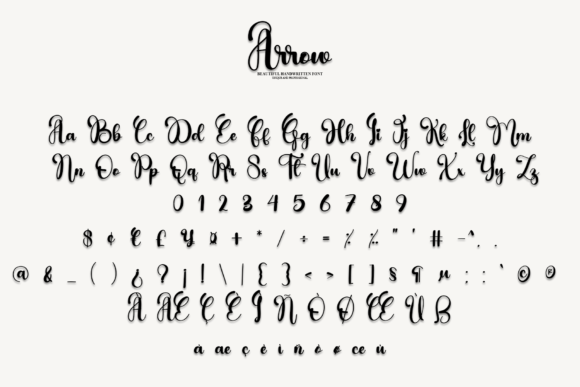 Arrow
BEAUTIFUL HANDWRITTEN FONT
Aa Bb Cc Dd Ee Ff Gg Hh Ii Jj Kk Ll Mm
Nn Oo Pp Qq Rr Ss Tt Uu Vo Ww Xx Yy Zz
0 1 2 3 4 5 6 7 8 9
$ ¢ € £ ¥ ¤ + * / ÷ = % ‰ " ' # - ^ , .
@ & _ ( ) ¿ ? ¡ ! \ | { } < > [ ] § ¶ µ : ; ` © ®
À Æ Ç È Ì Ñ Ò Ø Œ Ù ß
à æ ç è ì ñ ò ø œ ù